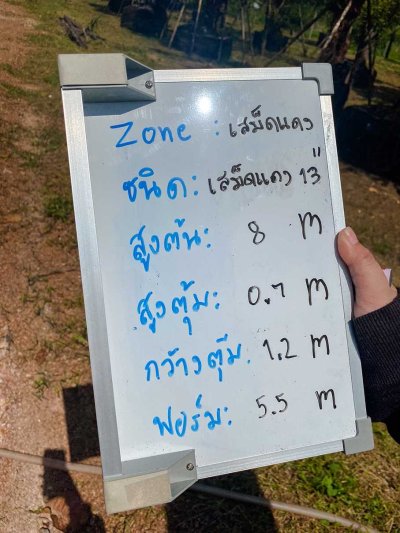 Zone : เสม็ดแดง
ชนิด : เสม็ดแดง 13"
สูงต้น: 8 m
สูงตุ้ม: 0.7 m
กว้างตุ้ม: 1.2 m
ฟอร์ม: 5.5 m